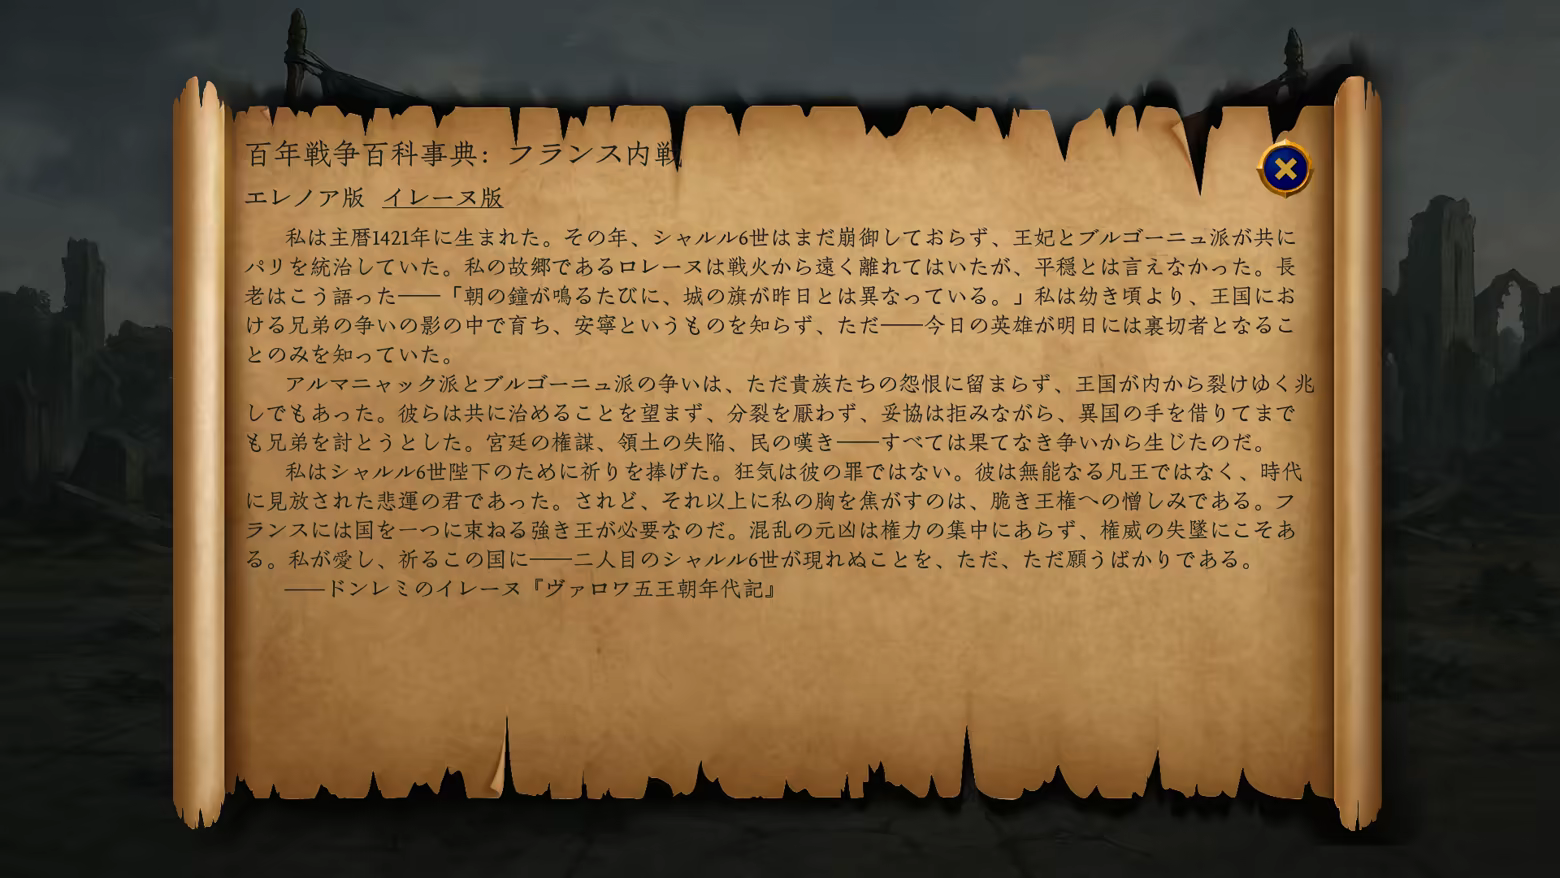 百年戦争百科事典: フランス内戦
エレノア版 イレーヌ版
私は主暦1421年に生まれた。その年、シャルル6世はまだ崩御しておらず、王妃とブルゴーニュ派が共に
パリを統治していた。私の故郷であるロレーヌは戦火から遠く離れてはいたが、平穏とは言えなかった。長
老はこう語った――「朝の鐘が鳴るたびに、城の旗が昨日とは異なっている。」私は幼き頃より、王国にお
ける兄弟の争いの影の中で育ち、安寧というものを知らず、ただ――今日の英雄が明日には裏切者となるこ
とのみを知っていた。
アルマニャック派とブルゴーニュ派の争いは、ただ貴族たちの怨恨に留まらず、王国が内から裂けゆく兆
しでもあった。彼らは共に治めることを望まず、分裂を厭わず、妥協は拒みながら、異国の手を借りてまで
も兄弟を討とうとした。宮廷の権謀、領土の失陥、民の嘆き――すべては果てなき争いから生じたのだ。
私はシャルル6世陛下のために祈りを捧げた。狂気は彼の罪ではない。彼は無能なる凡王ではなく、時代
に見放された悲運の君であった。されど、それ以上に私の胸を焦がすのは、脆き王権への憎しみである。フ
ランスには国を一つに束ねる強き王が必要なのだ。混乱の元凶は権力の集中にあらず、権威の失墜にこそあ
る。私が愛し、祈るこの国に――二人目のシャルル6世が現れぬことを、ただ、ただ願うばかりである。
――ドンレミのイレーヌ『ヴァロワ五王朝年代記』